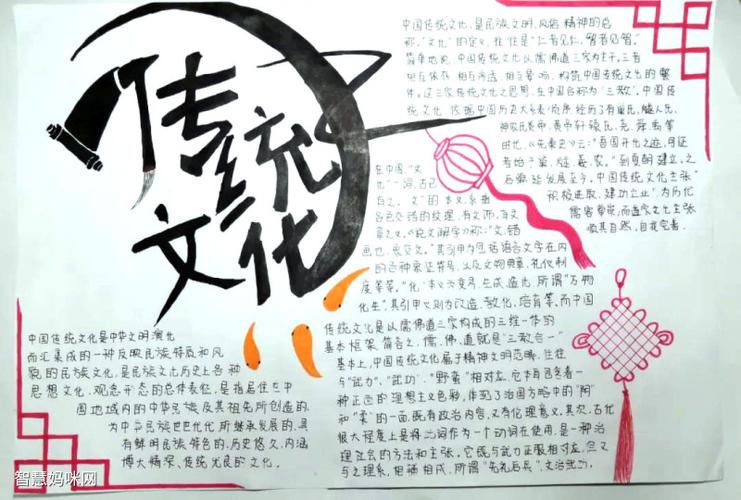 传统
文化
中国传统文化,是民族文明,风俗,精神的总
称。"文化"的定义,往往是"仁者见仁,智者见智。"
简单地说,中国传统文化以儒佛道三家为主干,三者
相互依存,相互渗透,相互影响,构筑中国传统文化的整
体。这三家传统文化之思想,在中国合称为"三教"。中国传
统文化,依据中国历史大系表顺序,经历了有巢氏,燧人氏,
神农氏炎帝,黄帝轩辕氏,尧,舜,禹等
时代,
到夏朝建立,之
后绵延发展至今。中国传统文化主张"
积极进取,建功立业",为历代
儒客尊崇,而道家文化主张
顺其自然,自我完善.
在中国,"文
化"一词,古已
有之。"文"的本义,系指
各色交错的纹理,有文饰,文
章之义。《说文解字》称:"文,错
画也,象交文。"其引申为包括语言文字在内
的各种象征符号,以及文物典章、礼仪制
度等等。"化"本义为变易、生成、造化,所谓"万物
化生",其引申义则为改造、教化、培育等。而中国
传统文化是以儒佛道三家构成的三维一体的
基本框架,简言之,儒、佛、道,就是"三教合一"
基本上,中国传统文化属于精神文明范畴,往往
与"武力"、"武功"、"野蛮"相对应,它本身包含着一
种正面的理想主义色彩,体现了治国方略中的"阴"
和"柔"的一面,既有政治内容,又有伦理意义。其次,古代
很大程度上是将此词作为一个动词在使用,是一种治
理社会的方法和主张,它既与武力征服相对应,但又
与之联系,相辅相成,所谓"先礼后兵",文治武功。
中国传统文化是中华文明演化
而汇集成的一种反映民族特质和风
貌的民族文化,是民族文化历史上各种
思想文化、观念形态的总体表征,是指居住在中
国地域内的中华民族及其祖先所创造的,
为中华民族世世代代所继承发展的,具
有鲜明民族特色的,历史悠久,内涵
博大精深、传统优良的文化。
智慧妈咪网